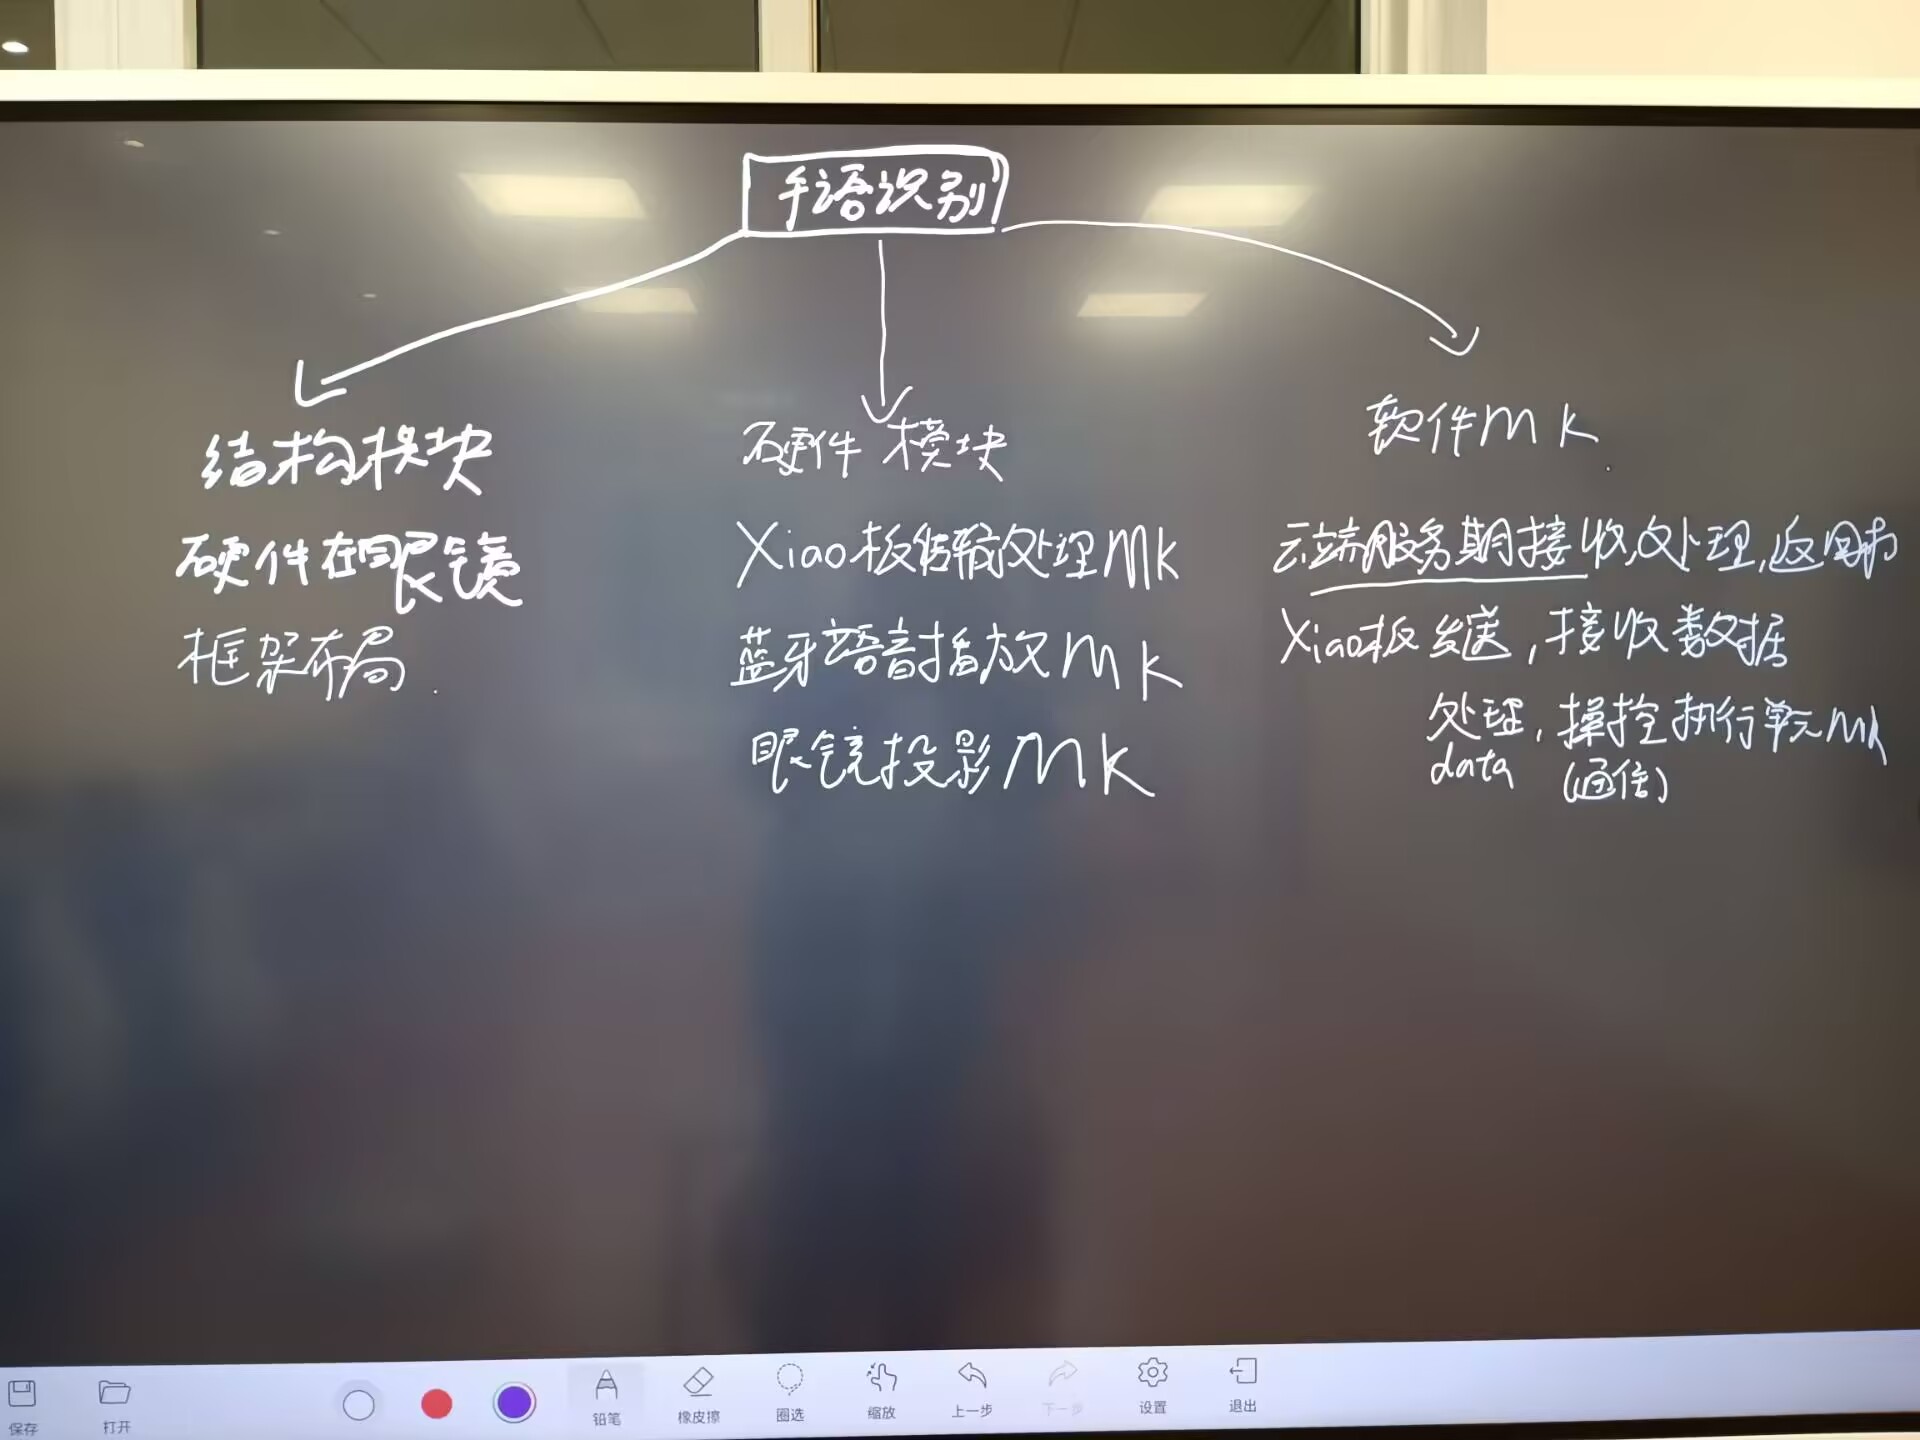 手语识别
结构模块
硬件在眼镜
框架布局.
硬件模块
Xiao板传输处理MK
蓝牙语音播放MK
眼镜投影MK
软件MK.
云端服务期接收,处理,返回
Xiao板发送,接收数据
处理,操控执行单元MK
data (通信)
保存 打开 铅笔 橡皮擦 圈选 缩放 上一步 下一步 设置 退出